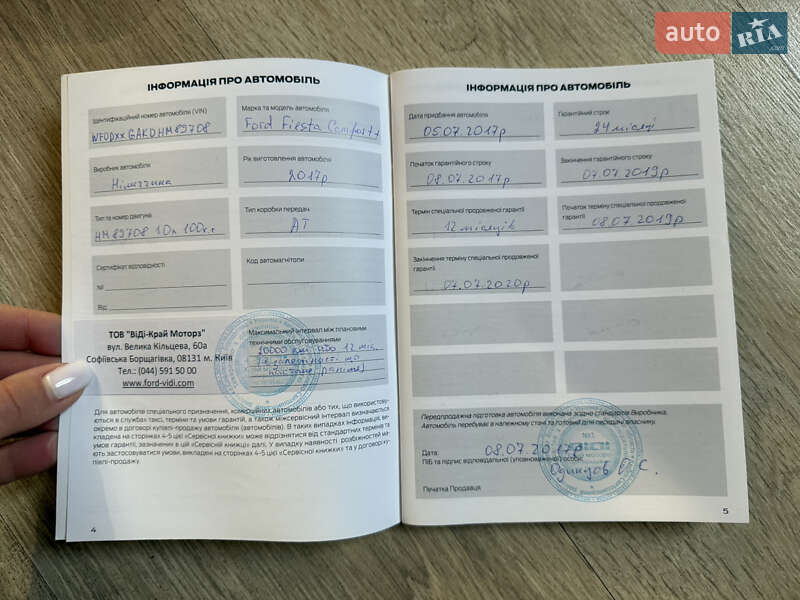 auto RIA.com
ІНФОРМАЦІЯ ПРО АВТОМОБІЛЬ
Ідентифікаційний номер автомобіля (VIN)
WF0DXXGAKDHM89708
Марка та модель автомобіля
Ford Fiesta Comfort+
Виробник автомобіля
Німеччина
Рік виготовлення автомобіля
2017р
Тип та номер двигуна
HM89708 1.0л 100к.с
Тип коробки передач
АТ
Сертифікат відповідності
№
Від
Код автомагнітоли
ТОВ "ВіДі-Край Моторз"
вул. Велика Кільцева, 60а
Софіївська Борщагівка, 08131 м. Київ
Тел.: (044) 591 50 00
www.ford-vidi.com
Максимальний інтервал між плановими
технічними обслуговуваннями
20000 км або 12 міс.
в залежності що
настане раніше
Для автомобілів спеціального призначення, комерційних автомобілів або тих, що використову-
ються в службах таксі, терміни та умови гарантій, а також міжсервісний інтервал визначається
окремо в договорі купівлі-продажу автомобіля (автомобілів). В таких випадках інформація, ви-
кладена на сторінках 4-5 цієї «Сервісної книжки» може відрізнятися від стандартних терміна та
умов гарантії, зазначених в цій «Сервісній книжці» далі. У випадку наявності розбіжностей ма-
ють застосовуватися умови, викладені на сторінках 4-5 цієї «Сервісної книжки» та у договорі ку-
півлі-продажу.
4
ІНФОРМАЦІЯ ПРО АВТОМОБІЛЬ
Дата придбання автомобіля
05.07.2017р
Гарантійний строк
24 місяці
Початок гарантійного строку
08.07.2017р
Закінчення гарантійного строку
07.07.2019р
Термін спеціальної продовженої гарантії
12 місяців
Початок терміну спеціальної продовженої
гарантії
08.07.2019р
Закінчення терміну спеціальної продовженої
гарантії
07.07.2020р
Передпродажна підготовка автомобіля виконана згідно стандартів Виробника.
Автомобіль перебуває в належному стані та готовий для передачі власнику.
Дата:
08.07.2017р
ПІБ та підпис відповідальної (уповноваженої) особи:
Печатка Продавця
5